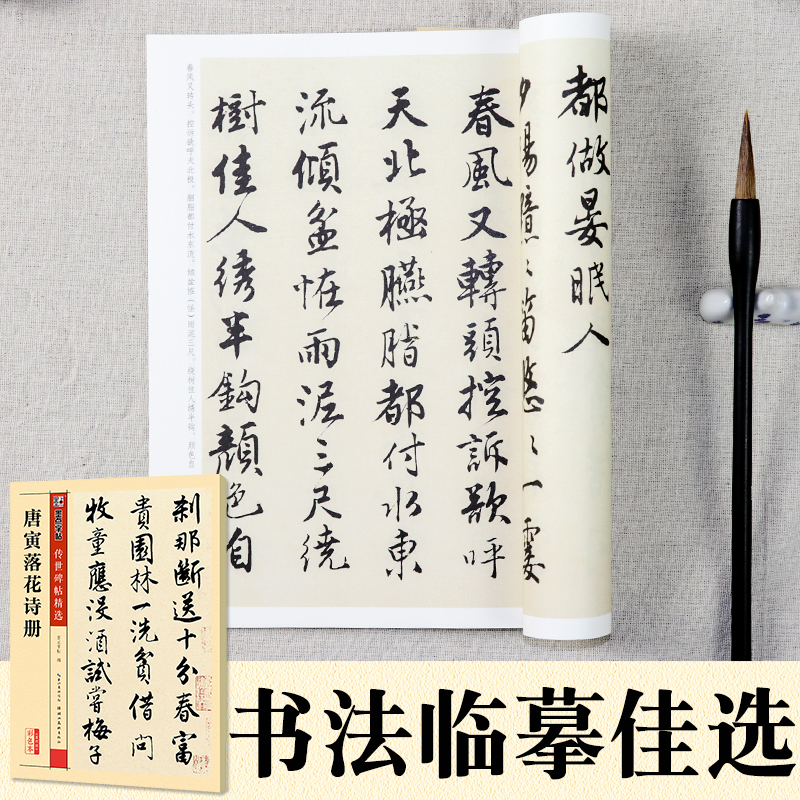 都做晏眠人
夕陽黯々笛悠々一霎
春風又轉頭控訴欲呼
天北極臙脂都付水東
流傾盆恠雨泥三尺繞
樹佳人綉半鈎顏色自
春风又转头。控诉欲呼天北极，胭脂都付水东流。倾盆恠（怪）雨泥三尺，绕树佳人绣半钩。颜色自
刹那斷送十分春富
貴園林一洗貧借問
牧童應没酒試嘗梅子
墨点字帖
传世碑帖精选
唐寅落花诗册
彩色本
书法临摹佳选